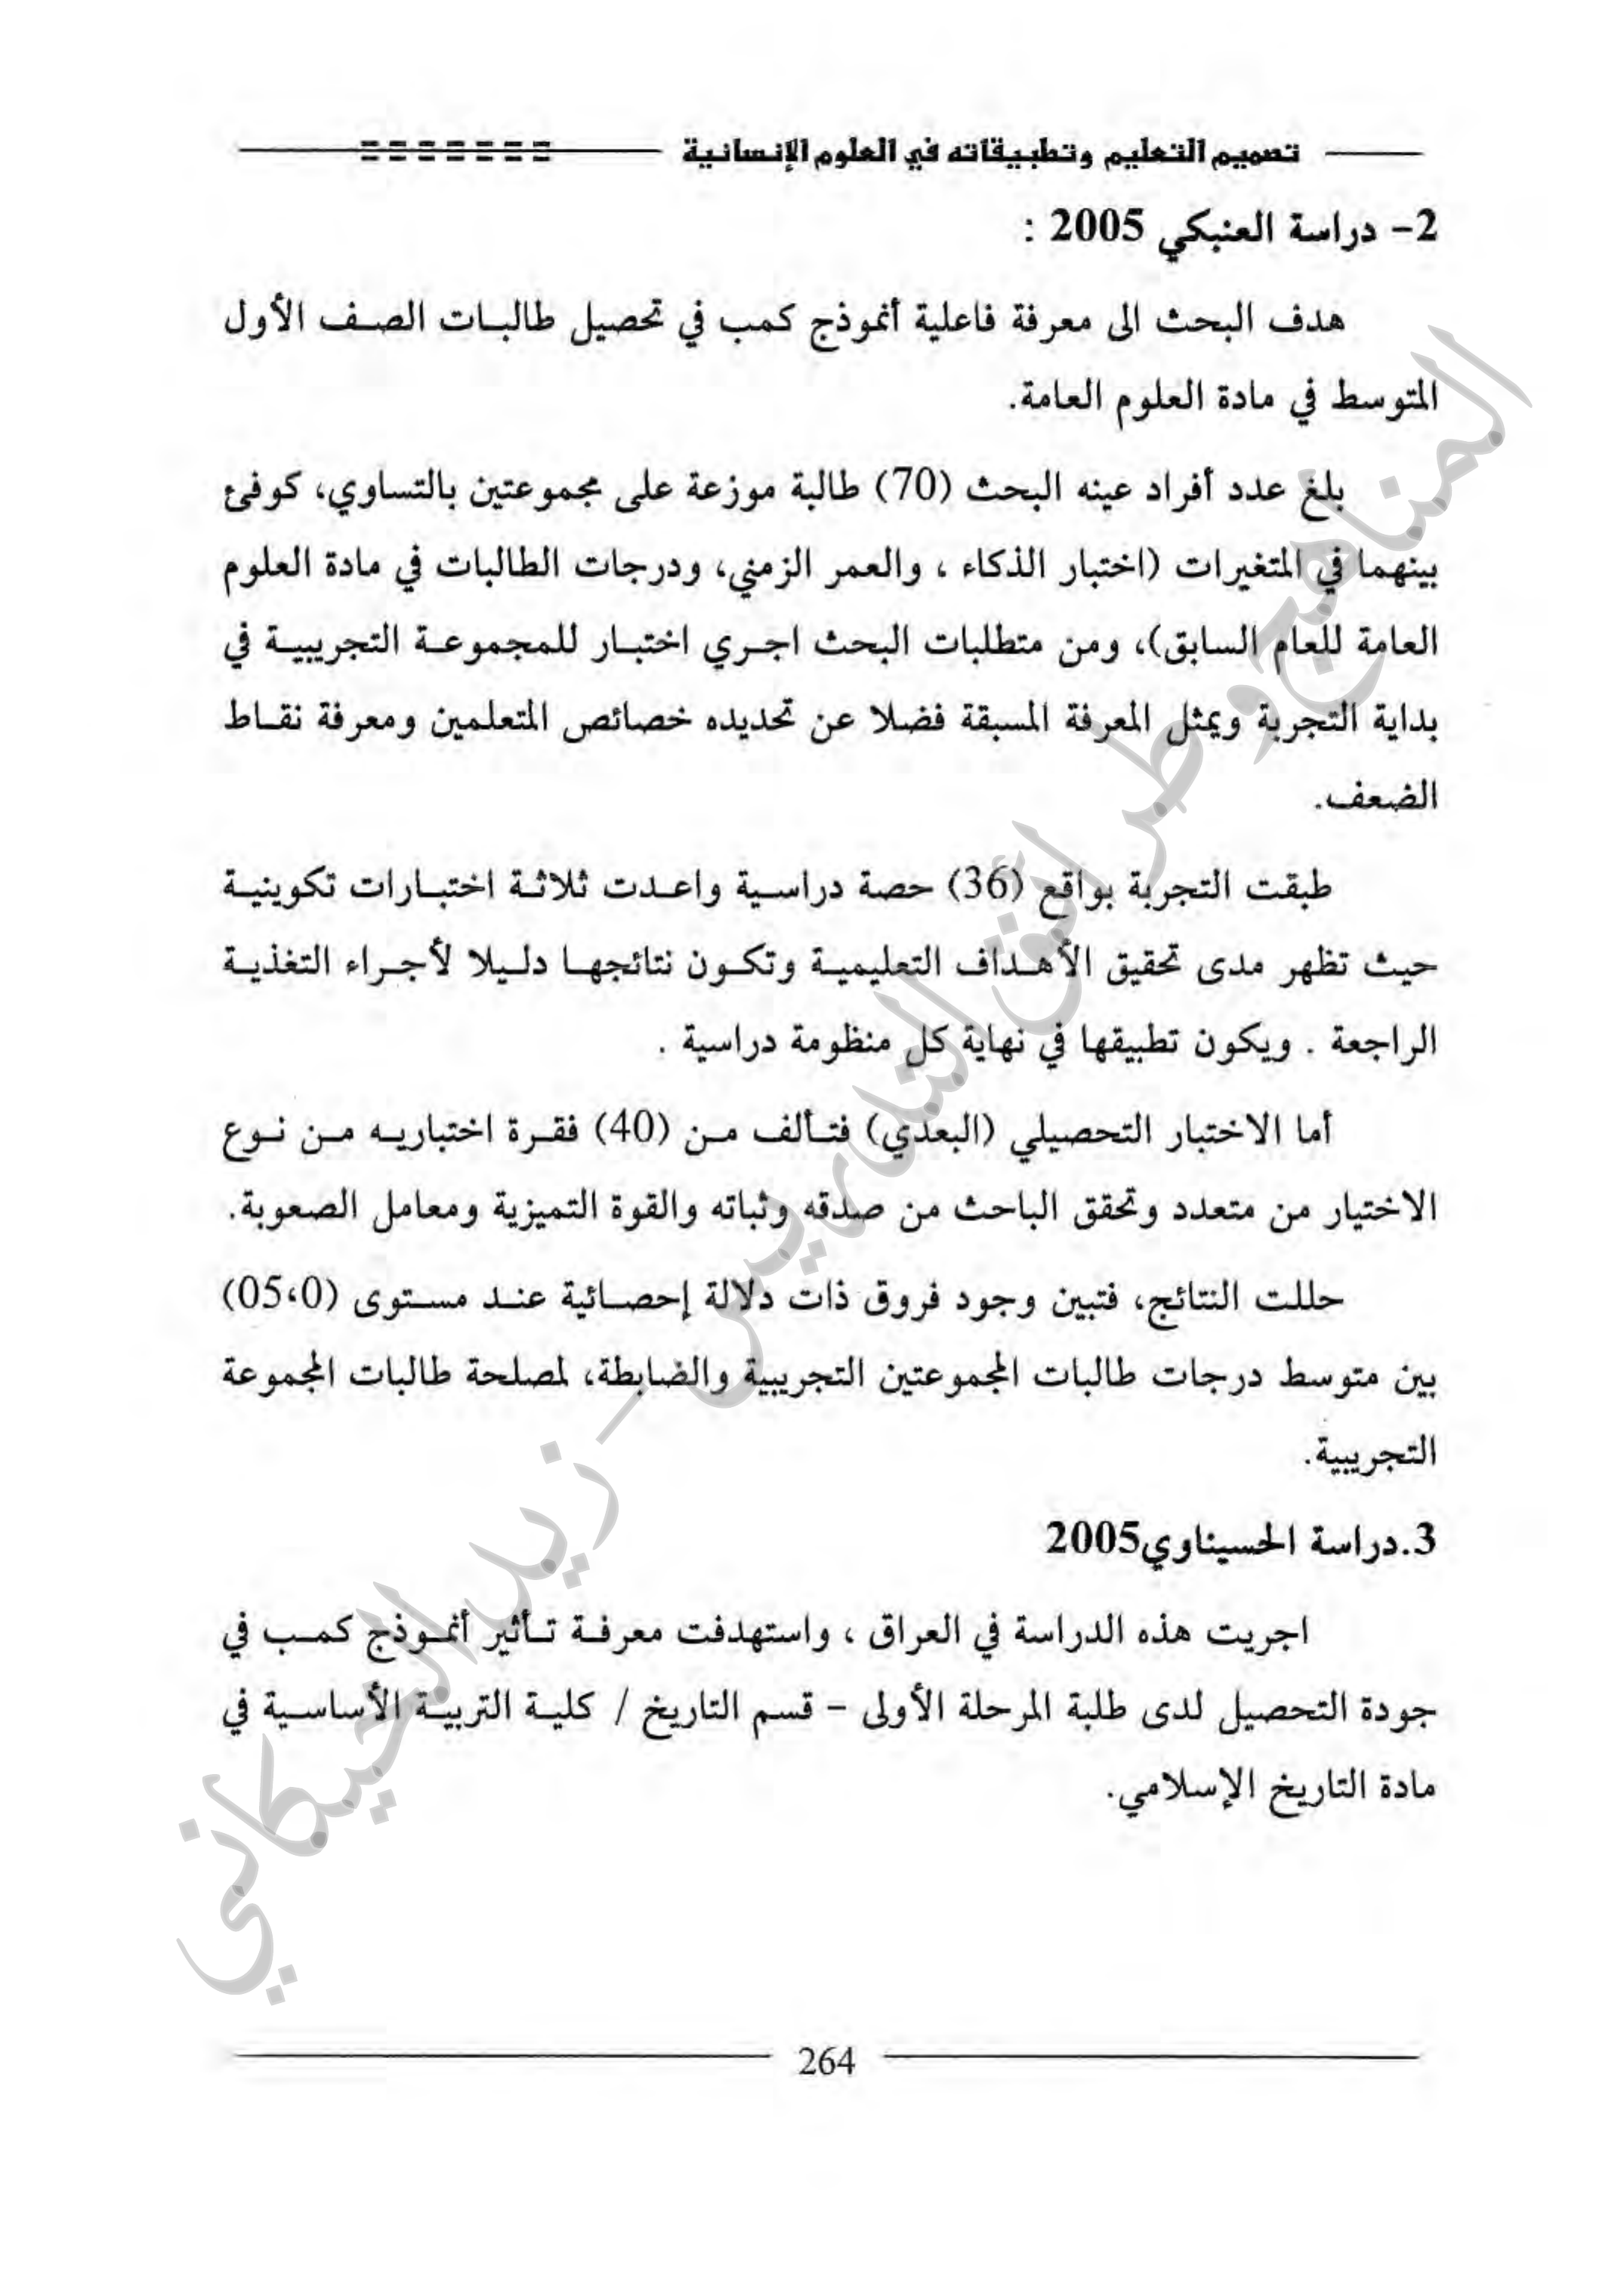 تصميم التعليم وتطبيقاته في العلوم الإنسانية
2- دراسة العنبكي 2005 :
هدف البحث الى معرفة فاعلية أنموذج كمب في تحصيل طالبات الصف الأول
المتوسط في مادة العلوم العامة.
بلغ عدد أفراد عينه البحث (70) طالبة موزعة على مجموعتين بالتساوي، كوفئ
بينهما في المتغيرات (اختبار الذكاء ، والعمر الزمني، ودرجات الطالبات في مادة العلوم
العامة للعام السابق)، ومن متطلبات البحث اجري اختبار للمجموعة التجريبية في
بداية التجربة ويمثل المعرفة المسبقة فضلا عن تحديده خصائص المتعلمين ومعرفة نقاط
الضعف.
طبقت التجربة بواقع (36) حصة دراسية واعدت ثلاثة اختبارات تكوينية
حيث تظهر مدى تحقيق الأهداف التعليمية وتكون نتائجها دليلا لأجراء التغذية
الراجعة . ويكون تطبيقها في نهاية كل منظومة دراسية .
أما الاختبار التحصيلي (البعدي) فتألف من (40) فقرة اختباريه من نوع
الاختيار من متعدد وتحقق الباحث من صدقه وثباته والقوة التميزية ومعامل الصعوبة.
حللت النتائج، فتبين وجود فروق ذات دلالة إحصائية عند مستوى (05،0)
بين متوسط درجات طالبات المجموعتين التجريبية والضابطة، لمصلحة طالبات المجموعة
التجريبية.
3.دراسة الحسيناوي2005
اجريت هذه الدراسة في العراق ، واستهدفت معرفة تأثير أنموذج كمب في
جودة التحصيل لدى طلبة المرحلة الأولى - قسم التاريخ / كلية التربية الأساسية في
مادة التاريخ الإسلامي.
المناهج وطرائق التدريس - زيد الخيكاني
264